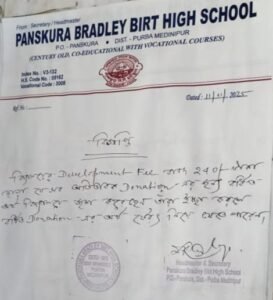 From : Secretary / Headmaster
PANSKURA BRADLEY BIRT HIGH SCHOOL
P.O.- PANSKURA • DIST.- PURBA MEDINIPUR
(CENTURY OLD, CO-EDUCATIONAL WITH VOCATIONAL COURSES)
Index No. : V3-132
H.S. Code No. : 09162
Vocational Code : 2008
Ref. No.
Dated : 11/11/2025
বিজ্ঞপ্তি
বিদ্যালয়ের Development Fee বাবদ 240/- টাকা
ছাড়া যেসব অভিভাবক Donation এর জন্য বর্ধিত
অর্থ বিদ্যালয়ে জমা করেছেন তারা ইচ্ছা করলে
বর্ধিত Donation-এর অর্থ ফেরৎ নিয়ে যেতে পারেন।
Headmaster & Secretary
Panskura Bradley Birt High School
Panskura, Dist.-Purba Medinipur